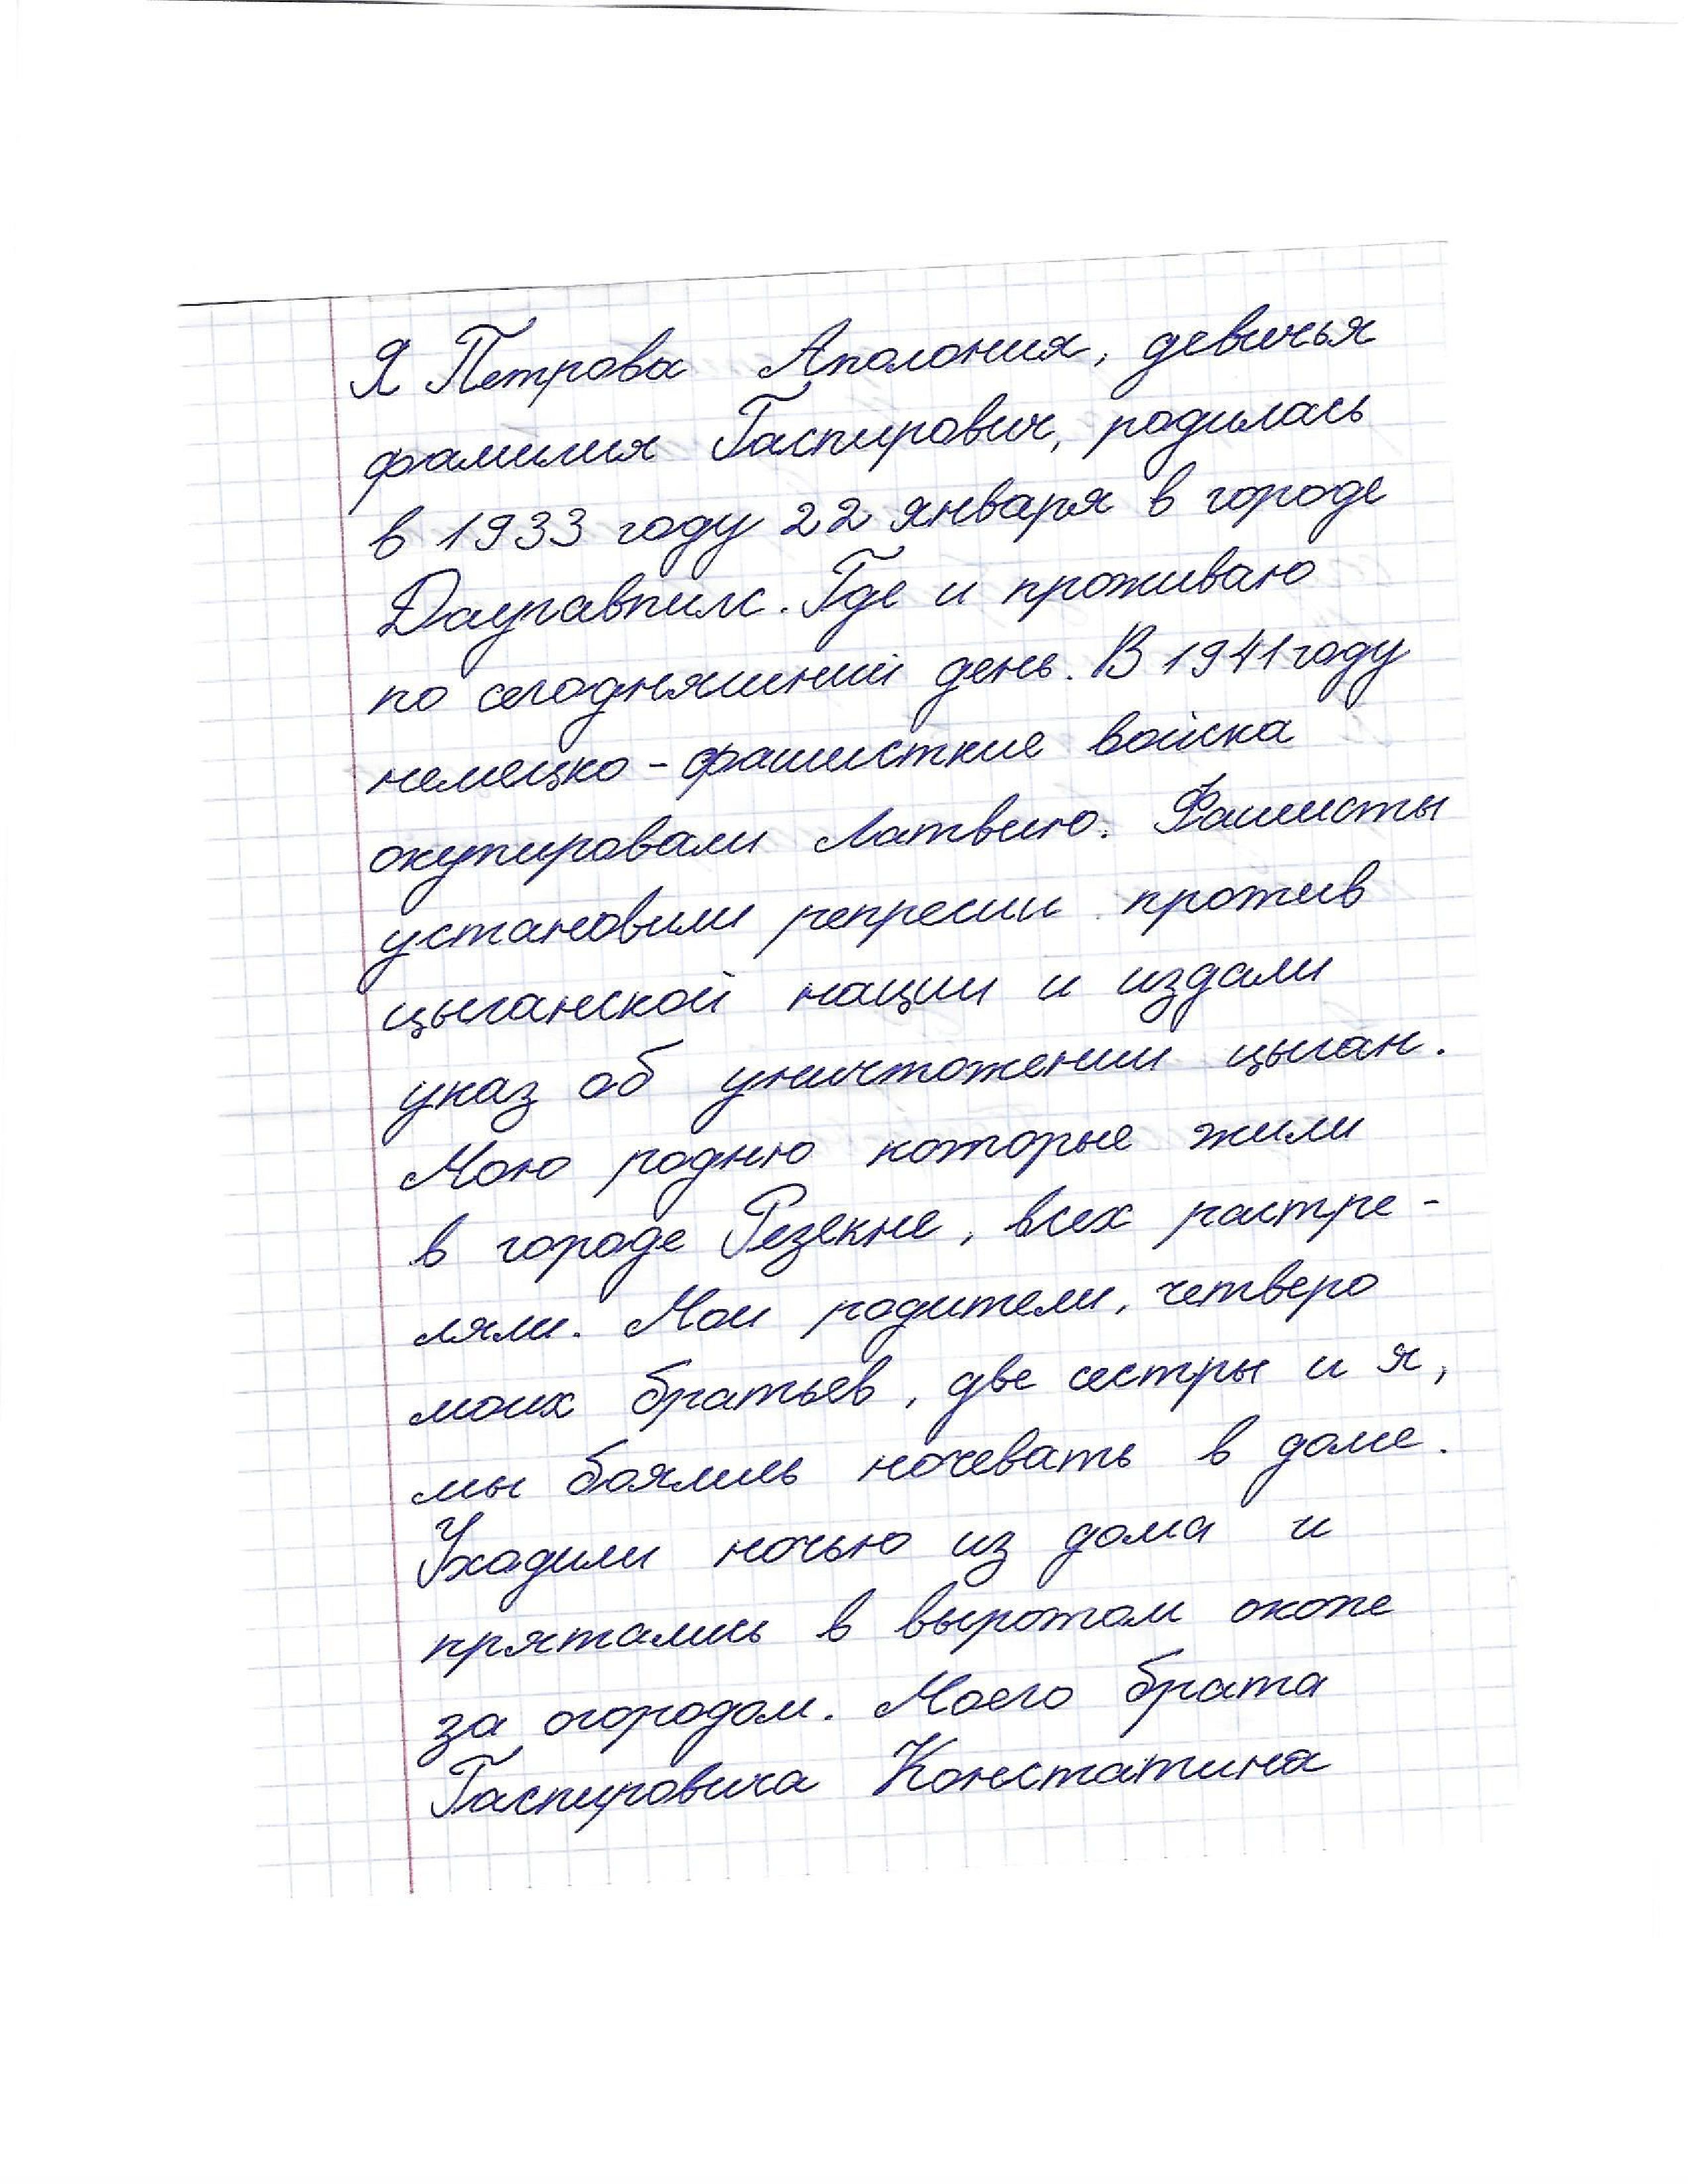 Я Петрова Аполония, девичья
фамилия Гаспирович, родилась
в 1933 году 22 января в городе
Даугавпилс. Где и проживаю
по сегодняшний день. В 1941 году
немецко-фашисткие войска
окупировали Латвию. Фашисты
установили репресии против
цыганской нации и издали
указ об уничтожении цыган.
Мою родню которые жили
в городе Резекне, всех растре-
ляли. Мои родители, четверо
моих братьев, две сестры и я,
мы боялись ночевать в доме.
Уходили ночью из дома и
прятались в вырытом окопе
за огородом. Моего брата
Гаспировича Констатина